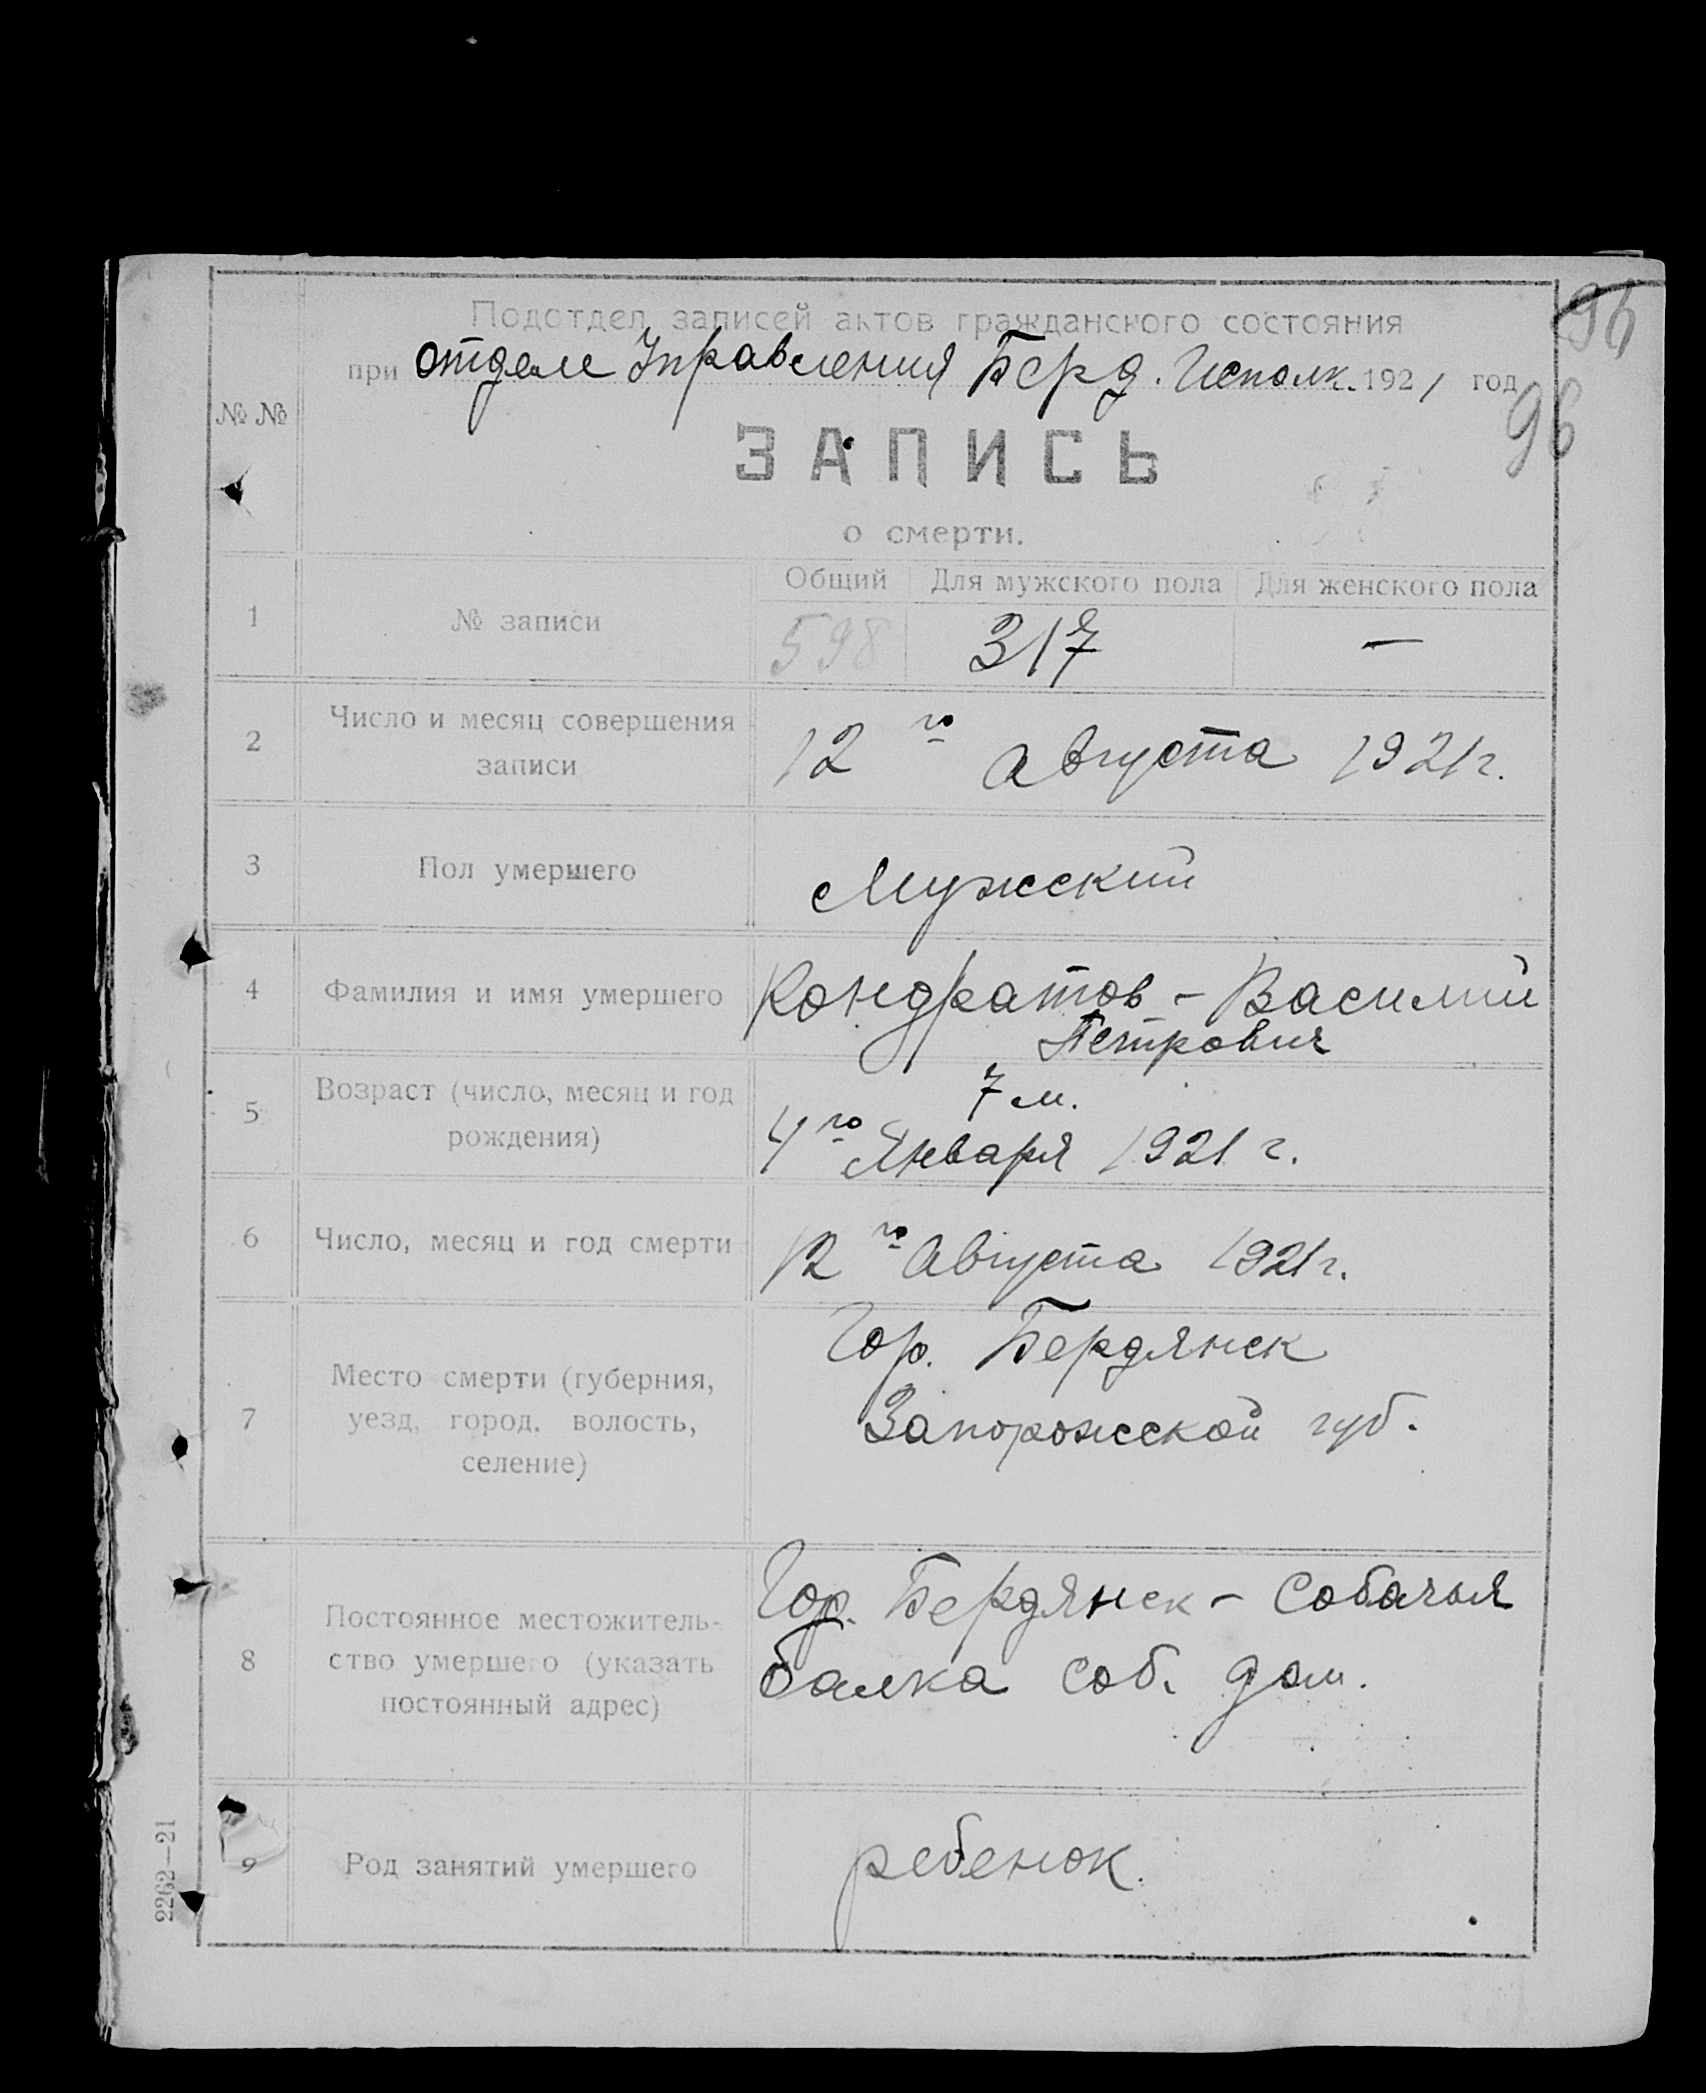 96
Подотдел записей актов гражданского состояния
при отделе Управления Берд. Исполк. 1921 год
96
№ №
ЗАПИСЬ
о смерти.
Общий Для мужского пола Для женского пола
1 № записи 598 317 —
2 Число и месяц совершения
записи 12го Августа 1921 г.
3 Пол умершего Мужеский
4 Фамилия и имя умершего Кондратов - Василий
Петрович
7 м.
5 Возраст (число, месяц и год
рождения) 4го Января 1921 г.
6 Число, месяц и год смерти 12го Августа 1921 г.
Гор. Бердянск
7 Место смерти (губерния,
уезд, город, волость, Запорожеской губ.
селение)
Гор. Бердянск - Собачья
8 Постоянное местожитель-
ство умершего (указать балка соб. дом.
постоянный адрес)
9 Род занятий умершего ребенок.
2262—21